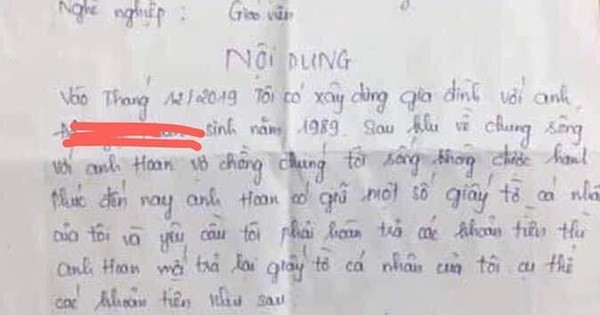 Nghề nghiệp : Giáo viên
NỘI DUNG
Vào Tháng 12/2019 Tôi có xây dựng gia đình với anh
sinh năm 1989. Sau khi về chung sống
với anh Hoan vợ chồng chúng tôi sống không được hạnh
phúc đến nay anh Hoan có giữ một số giấy tờ cá nhâ
của tôi và yêu cầu tôi phải hoàn trả các khoản tiền thì
anh Hoan mới trả lại giấy tờ cá nhân của tôi cụ thể
các khoản tiền như sau